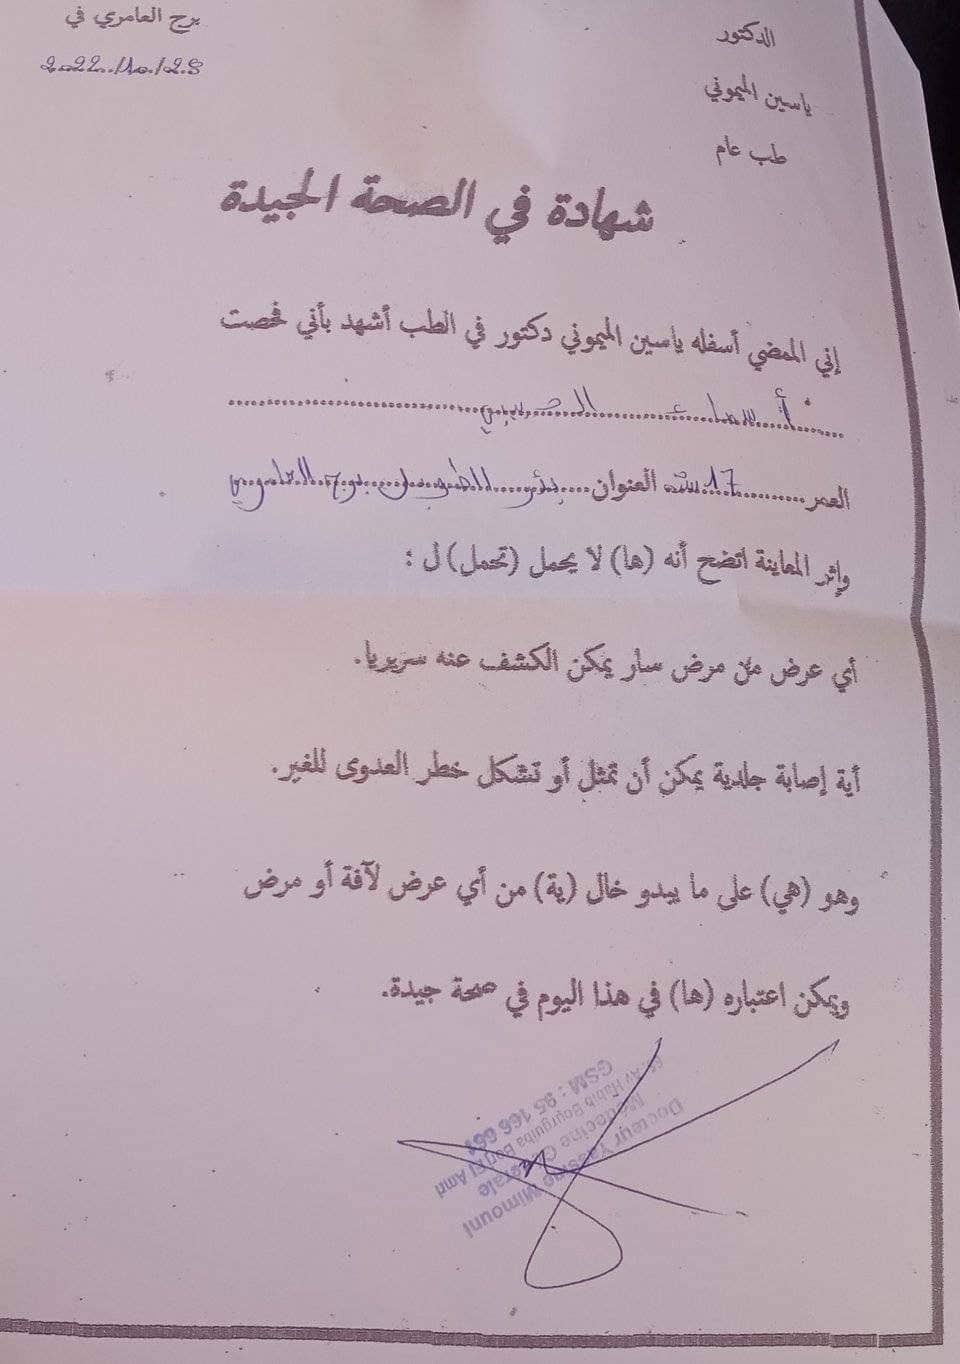 الدكتور
ياسين الميموني
طب عام
برج العامري في
2022/10/28
شهادة في الصحة الجيدة
إني الممضي أسفله ياسين الميموني دكتور في الطب أشهد بأني فحصت
أسماء
العمر 17 سنة العنوان بئر الطويل برج العامري
وإثر المعاينة اتضح أنه (ها) لا يحمل (تحمل) ل :
أي عرض من مرض سار يمكن الكشف عنه سريريا.
أية إصابة جلدية يمكن أن تمثل أو تشكل خطر العدوى للغير.
وهو (هي) على ما يبدو خال (ية) من أي عرض لآفة أو مرض
ويمكن اعتباره (ها) في هذا اليوم في صحة جيدة.
Docteur Yassine Mimouni
Médecine Générale
Av Habib Bourguiba Borj El Amri
GSM : 95 166